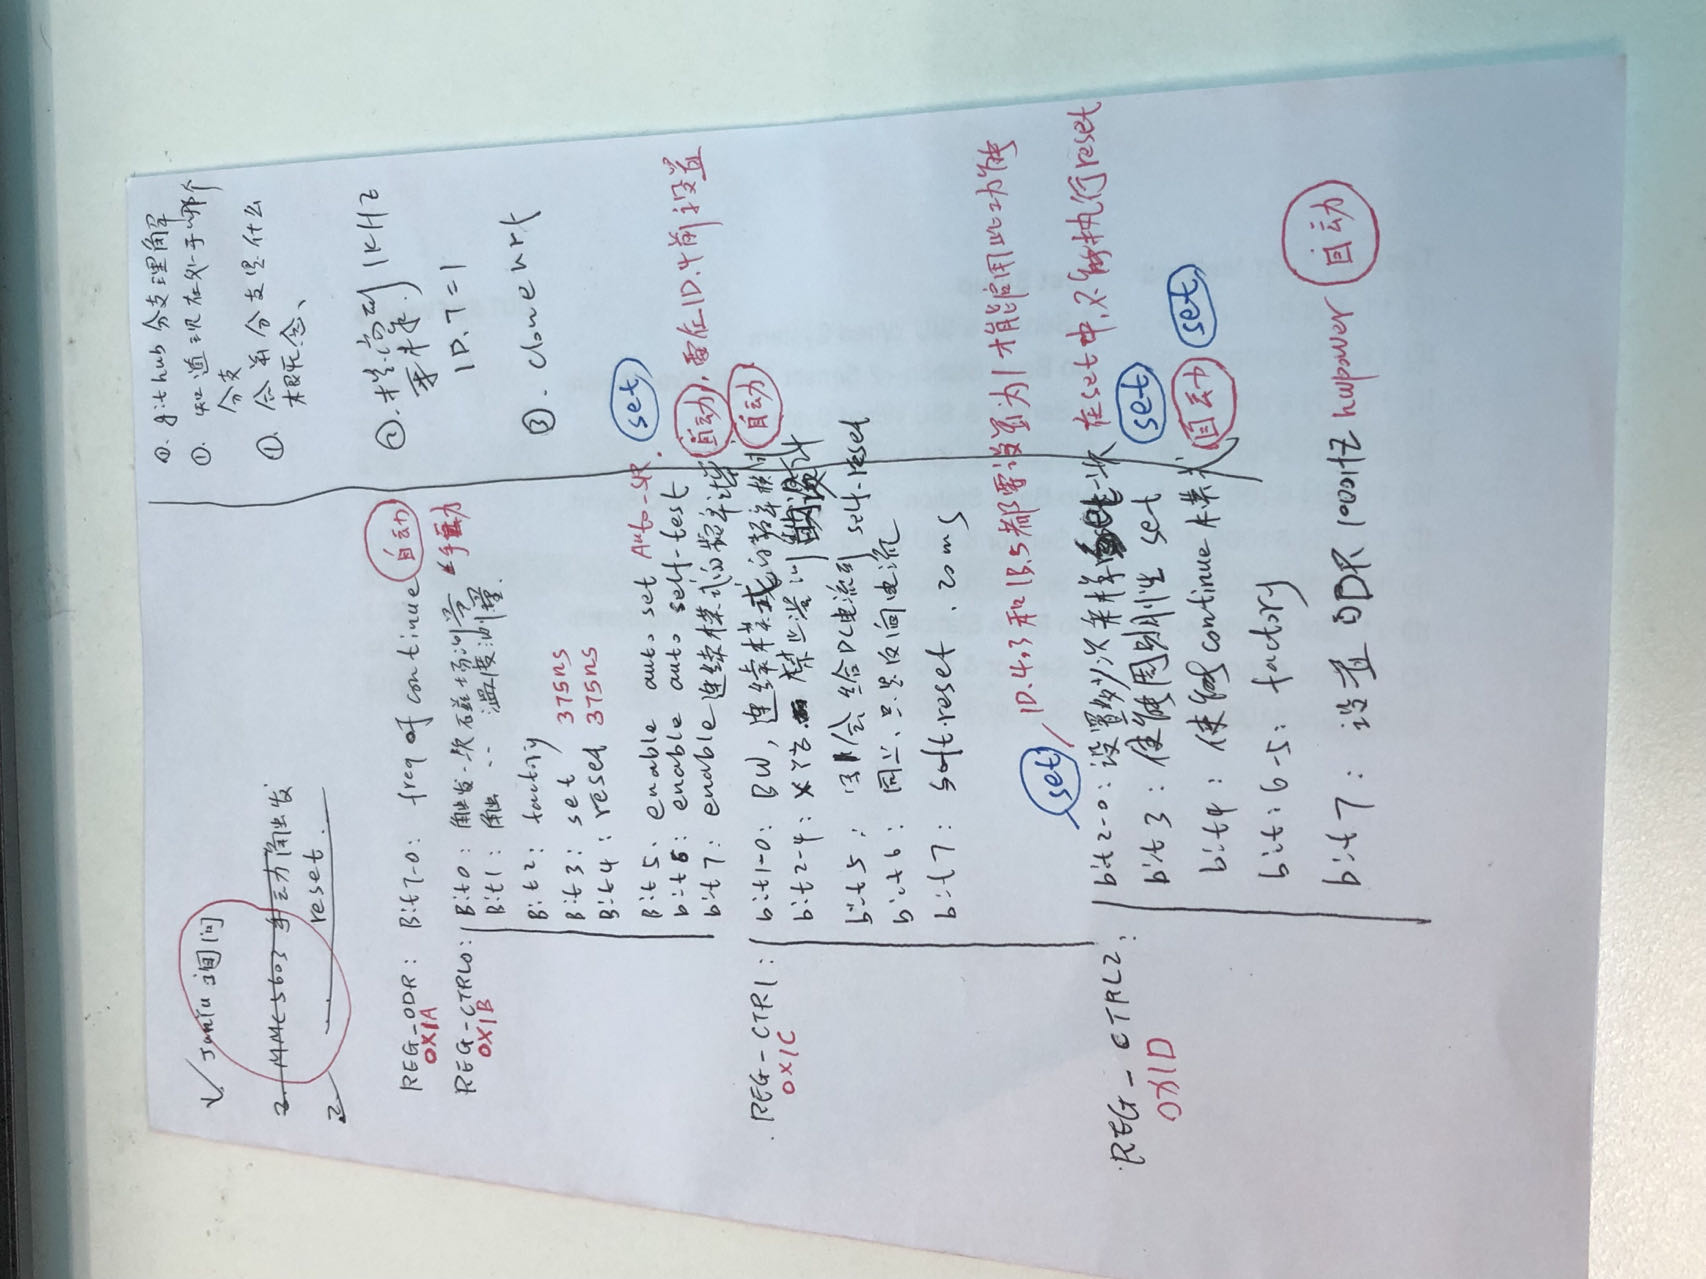 1. Janiu 询问
2. MMC5603 手动触发
reset.
2.
REG_ODR: Bit7-0: freq of continue 自动
0X1A
REG-CTRL0: Bit0: 触发一次磁场测量 手动
0X1B
Bit1: 触 ‥ 温度测量.
Bit2: factory
Bit3: set 375ns
Bit4: reset 375ns
Bit5. enable auto set Auto-SR. set
bit6: enable auto self-test
bit7: enable 连续模式的频率计算 自动, 要在1D.4前设置
REG-CTR1: bit1-0: BW, 连续模式的频率 自动
0X1C
bit2-4: XYZ 禁止
bit5: 写1会给DC电流到 self-reset
bit6: 同上,只是反向电流
bit7: soft.reset . 20ms
set 1D.4,3 和 1B.5都要设置为1才能启用此功能
REG_CTRL2: bit2-0: 设置多少次采样 set 一次 在set中,不能执行reset
0X1D
bit3: 使能周期性 set set
bit4: 使能continue模式 自动 set
bit: 6-5: factory
bit7: 设置 ODR 1000HZ hwpower 自动
①. github 分支理解
①. 知道现在处于哪个
分支
①. 合并分支是什么
概念、
②. 提高到 1KHZ
采样.
1D.7=1
③. clone nrf